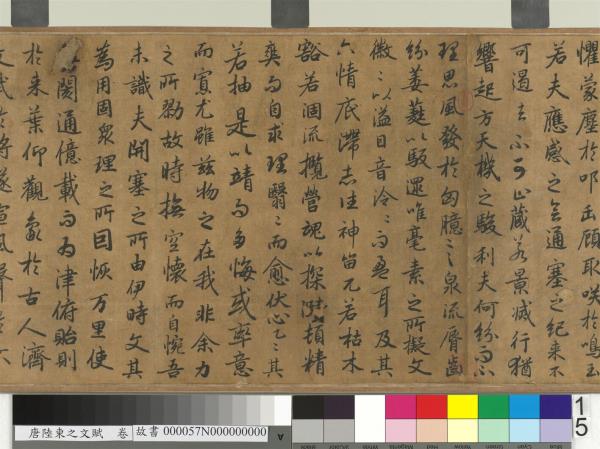 懼蒙塵於叩缶顧取咲於鳴玉
若夫應感之會通塞之紀來不
可遏去不可止藏若景滅行猶
響起方天機之駿利夫何紛而不
理思風發於匈臆言泉流脣齒
紛萎蕤以馺遝唯毫素之所擬文
徽〻以溢目音泠〻而盈耳及其
六情底滯志往神留兀若枯木
豁若涸流攬營魂以探賾頓精
爽而自求理翳〻而愈伏心乙〻其
若抽是以靖而多悔或率意
而寡尤雖茲物之在我非余力
之所勠故時撫空懷而自惋吾
未識夫開塞之所由伊時文其
為用固眾理之所因恢万里使
閡通億載而為津俯貽則
於來葉仰觀象於古人濟
文武於將墜宣風聲於不
唐陸柬之文賦 卷 故書 000057N000000000
A
15